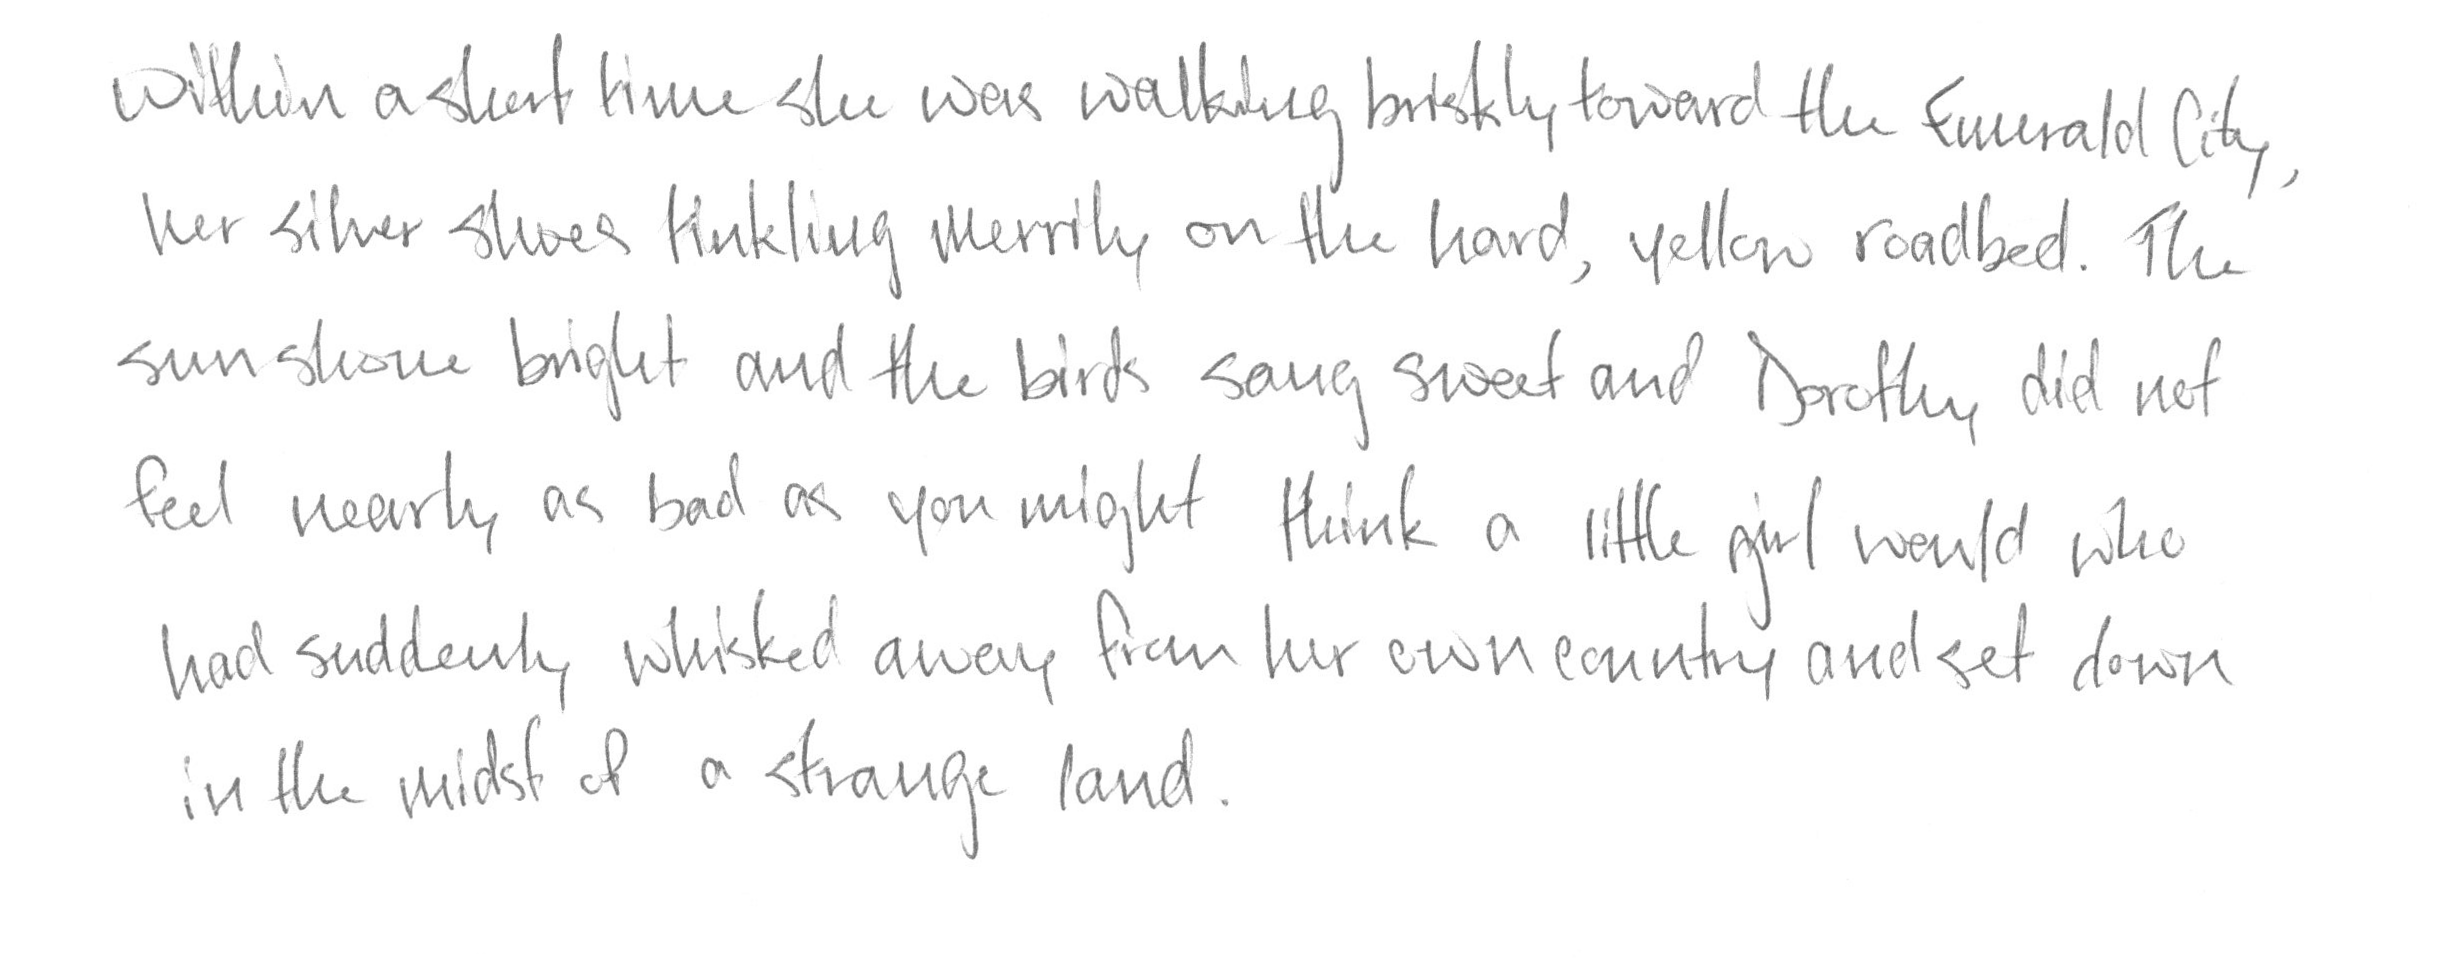 Within a short time she was walking briskly toward the Emerald City,
her silver shoes tinkling merrily on the hard, yellow roadbed. The
sun shone bright and the birds sang sweet and Dorothy did not
feel nearly as bad as you might think a little girl would who
had suddenly whisked away from her own country and set down
in the midst of a strange land.